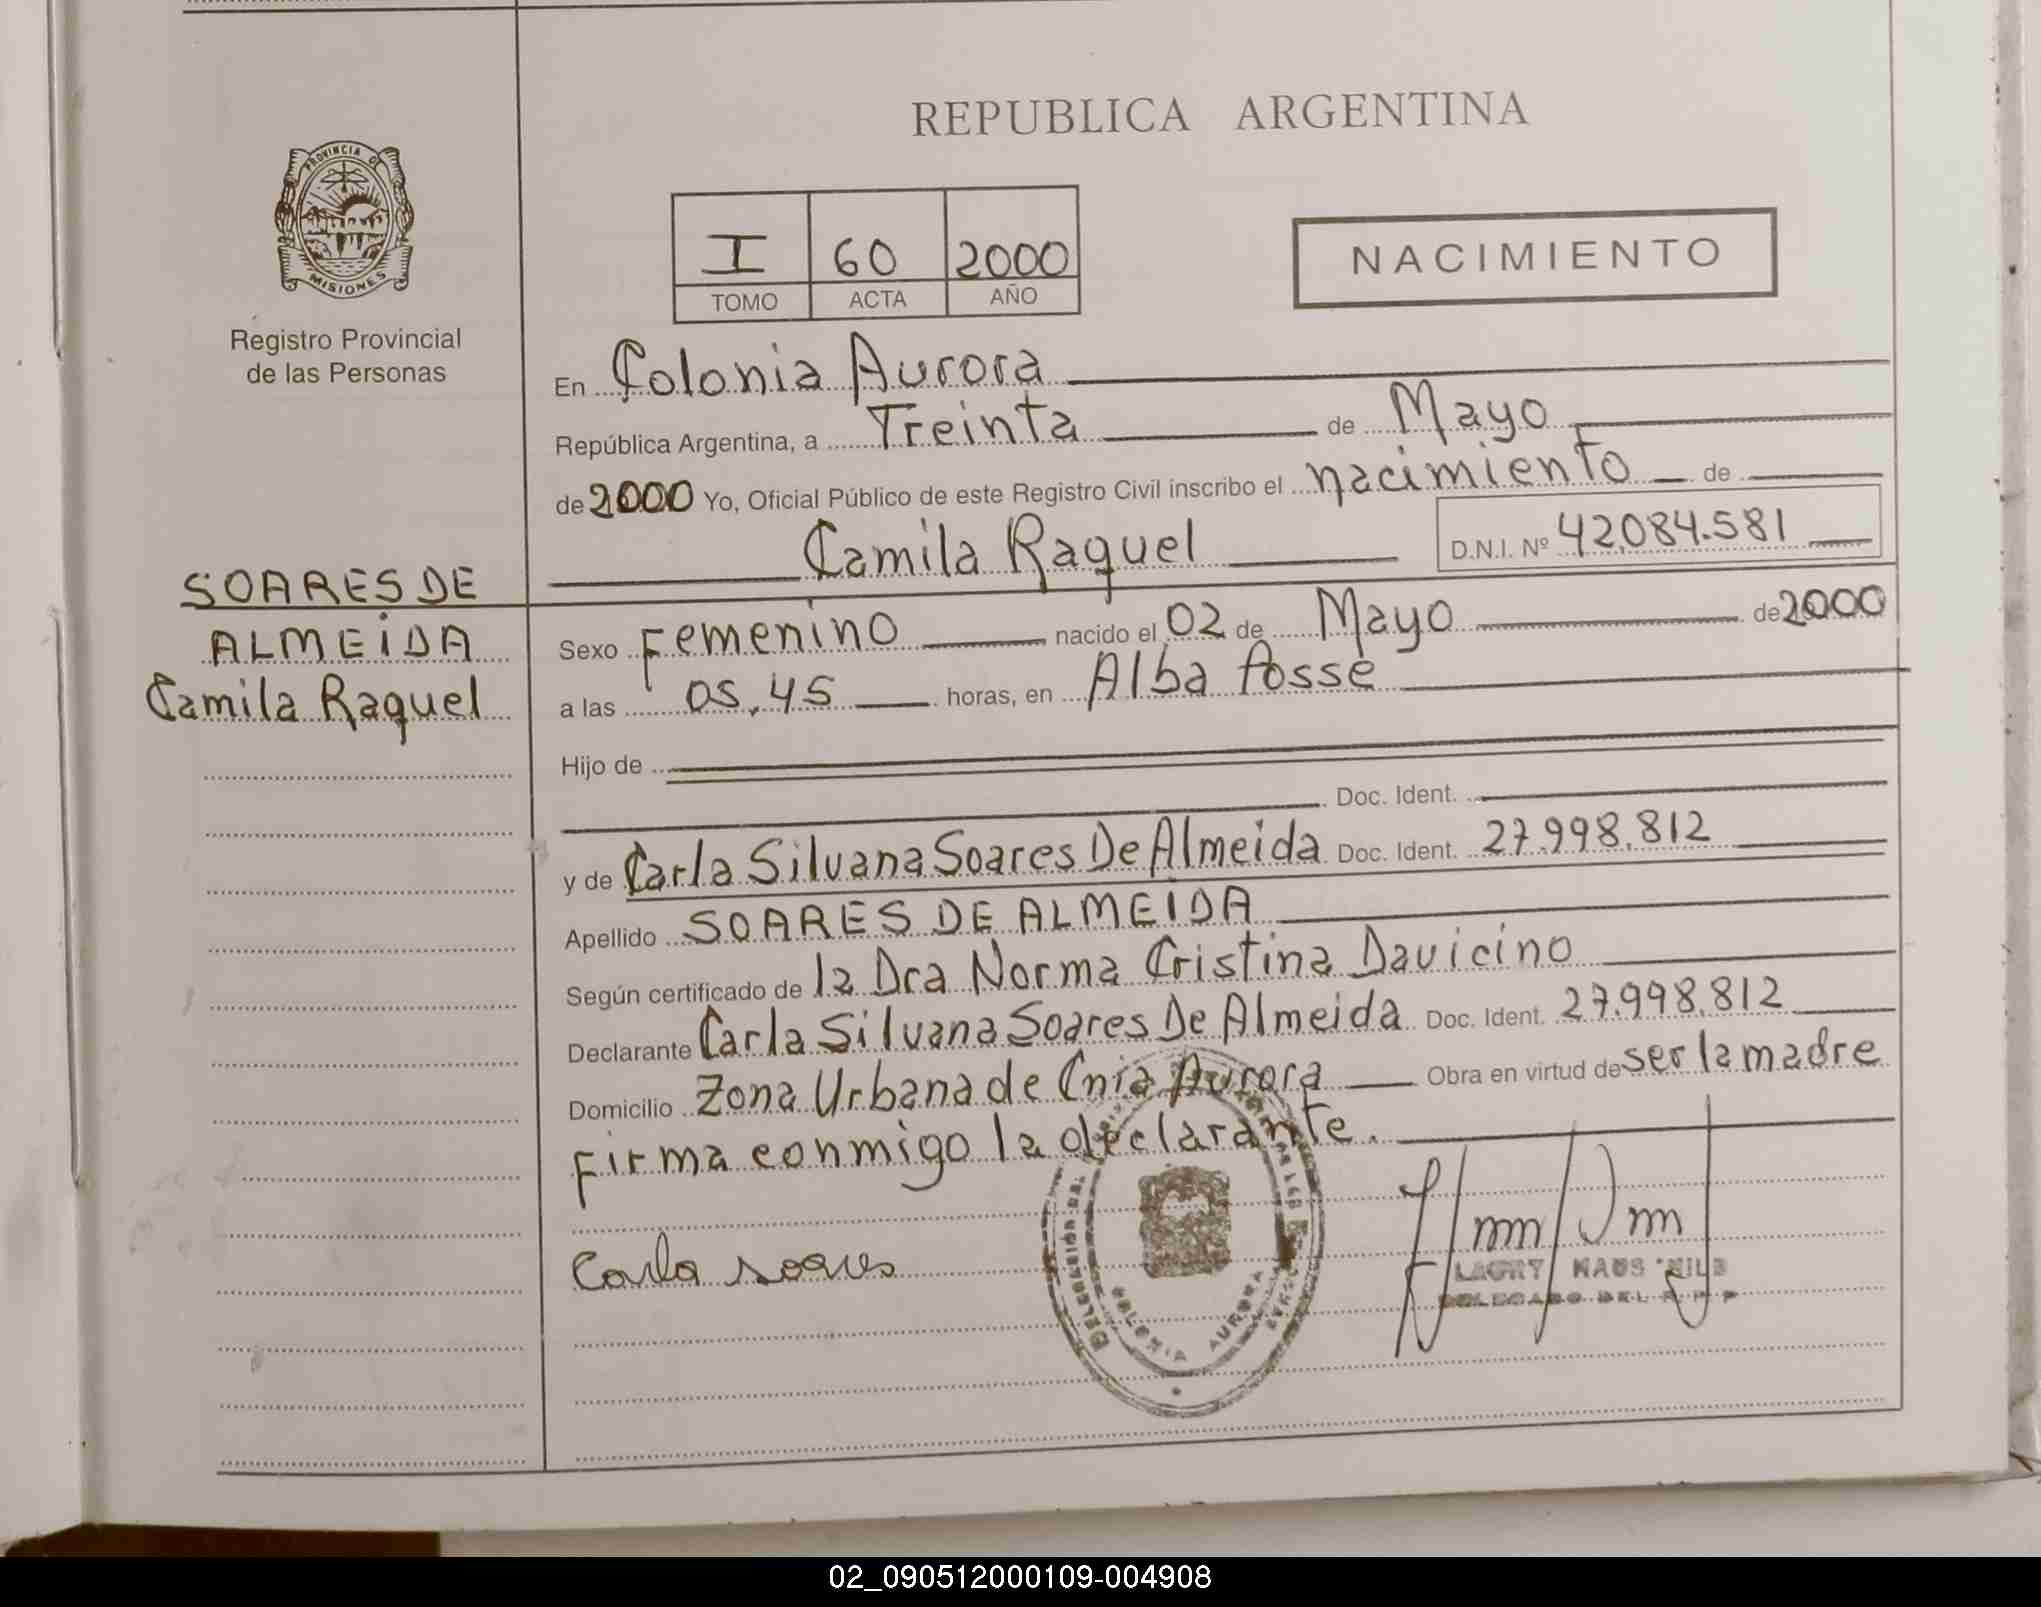 REPUBLICA ARGENTINA
PROVINCIA DE
MISIONES
Registro Provincial
de las Personas
I 60 2000
TOMO ACTA AÑO
NACIMIENTO
En Colonia Aurora
República Argentina, a Treinta de Mayo
de 2000 Yo, Oficial Público de este Registro Civil inscribo el nacimiento de
Camila Raquel D.N.I. Nº 42.084.581
SOARES DE
ALMEIDA
Camila Raquel
Sexo Femenino nacido el 02 de Mayo de 2000
a las 05,45 horas, en Alba Posse
Hijo de
Doc. Ident.
y de Carla Silvana Soares De Almeida Doc. Ident. 27.998.812
Apellido SOARES DE ALMEIDA
Según certificado de la Dra Norma Cristina Davicino
Declarante Carla Silvana Soares De Almeida Doc. Ident. 27.998.812
Domicilio Zona Urbana de Cnia Aurora Obra en virtud de ser la madre
Firma conmigo la declarante.
Carla Soares
COLONIA AURORA
DELEGADO DEL R.P.P
02_090512000109-004908